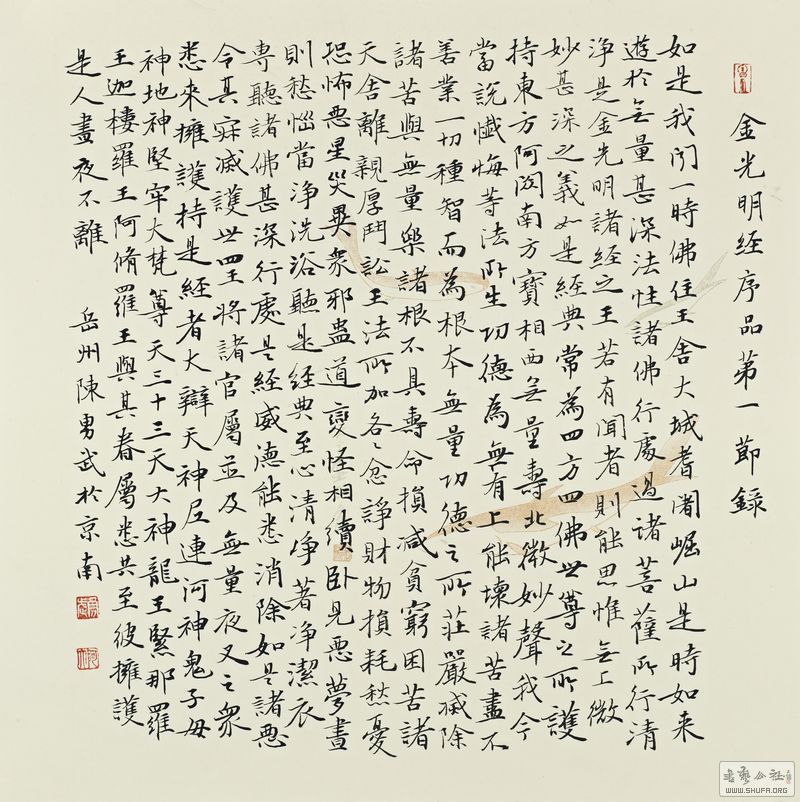 金光明經序品第一節錄
如是我聞一時佛住王舍大城耆闍崛山是時如来
遊於無量甚深法性諸佛行處過諸菩薩所行清
淨是金光明諸經之王若有聞者則能思惟無上微
妙甚深之義如是經典常為四方四佛世尊之所護
持東方阿閦南方寶相西無量壽北微妙聲我今
當說懺悔等法所生功德為無有上能壞諸苦盡不
善業一切種智而為根本無量功德之所莊嚴滅除
諸苦與無量樂諸根不具壽命損減貧窮困苦諸
天舍離親厚鬥訟王法所加各各忿諍財物損耗愁憂
恐怖惡星災異衆邪蠱道變怪相續卧見惡夢晝
則愁惱當淨洗浴聽是經典至心清淨著淨潔衣
専聽諸佛甚深行處是經威德能悉消除如是諸惡
令其寂滅護世四王將諸官屬並及無量夜叉之衆
悉来擁護持是經者大辯天神尼連河神鬼子母
神地神堅牢大梵尊天三十三天大神龍王緊那羅
王迦樓羅王阿脩羅王與其眷屬悉共至彼擁護
是人晝夜不離
岳州陳勇武於京南
WWW.SHUFA.ORG